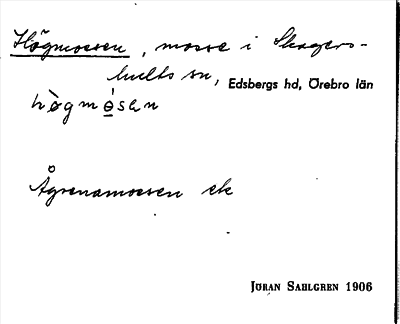 Högmossen, mosse i Skagers-
hults sn, Edsbergs hd, Örebro län
högmosen
Ågrenamossen ek
JÖRAN SAHLGREN 1906